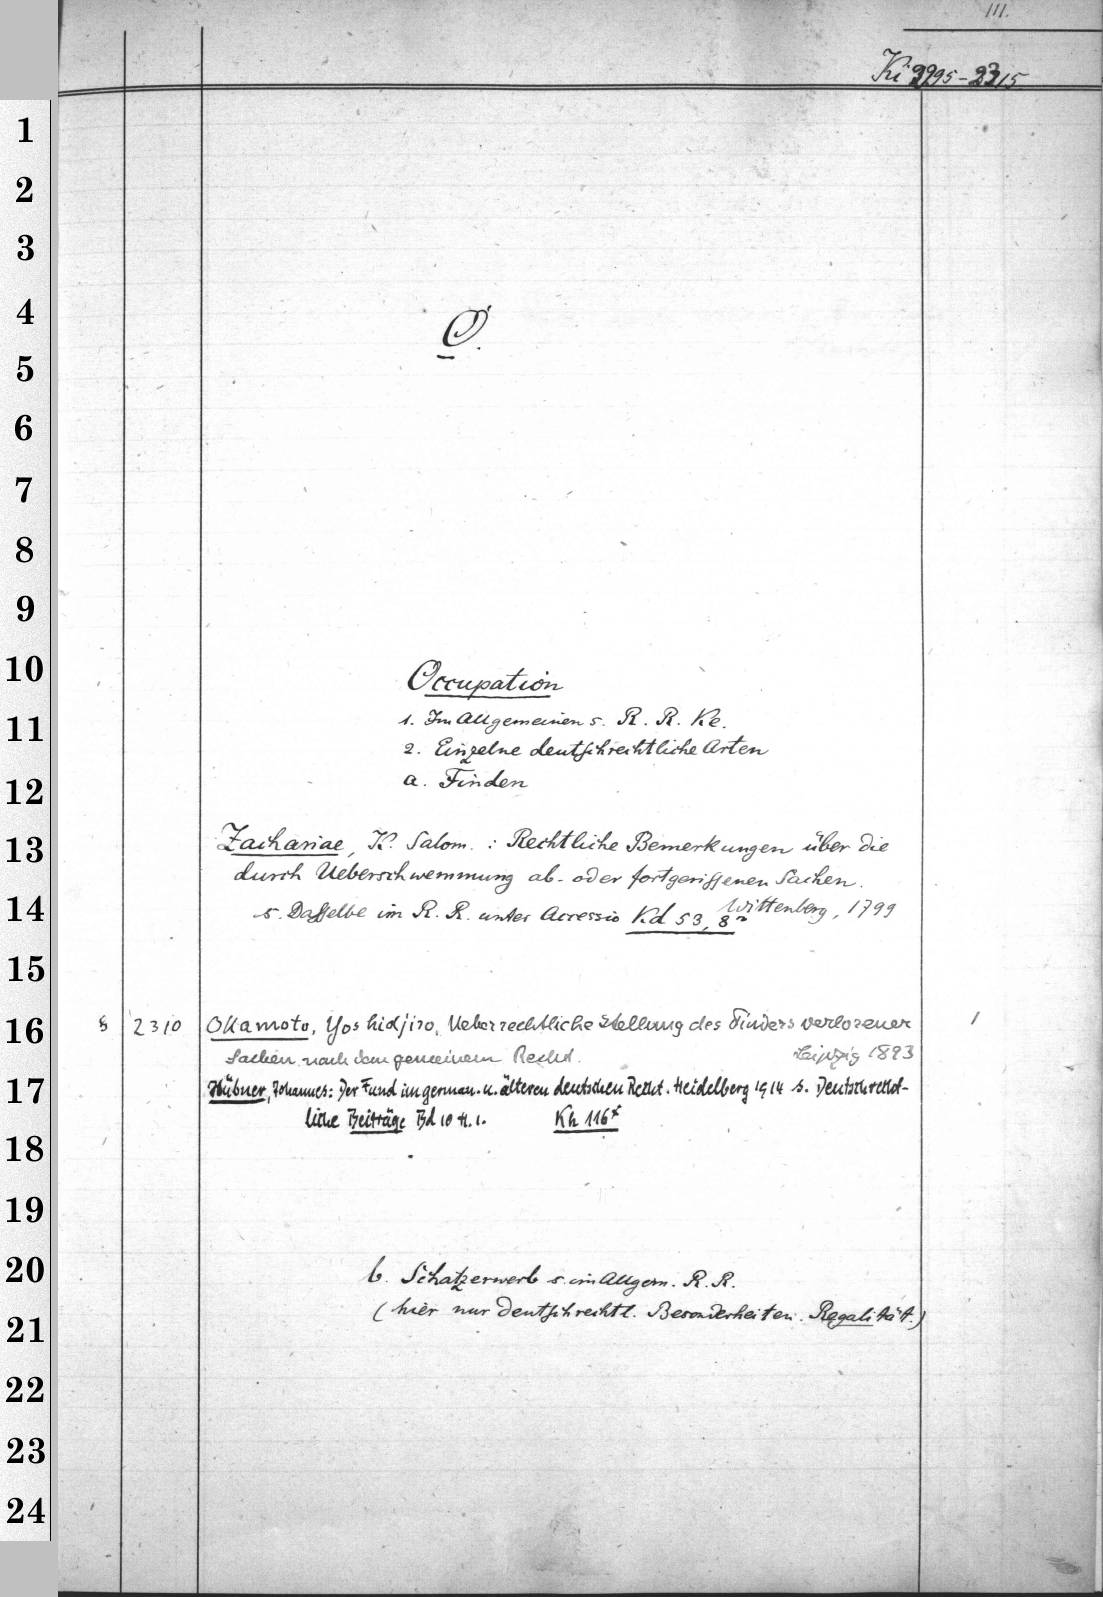 111.
Ki 2295-2315
1
2
3
4
O.
5
6
7
8
9
10
Occupation
11
1. Im Allgemeinen s. R. R. Ke.
2. Einzelne deutschrechtliche Arten
12
a. Finden
13
Zachariae, K. Salom. : Rechtliche Bemerkungen über die
durch Ueberschwemmung ab- oder fortgerissenen Sachen.
14
Wittenberg, 1799
s. Dasselbe im R. R. unter Accessio Kd 53, 8
15
16
8 2310 Okamoto, Yoshidjiro, Ueber rechtliche Stellung des Finders verlorener 1
Sachen nach dem gemeinem Recht. Leipzig 1893
17
Hübner, Johannes: Der Fund im german. u. älteren deutschen Recht. Heidelberg 1914 s. Deutschrecht-
liche Beiträge Bd 10 H. 1. Kh 116
18
19
20
b. Schatzerwerb s. im Allgem. R. R.
21
(hier nur deutschrechtl. Besonderheiten. Regalität.)
22
23
24